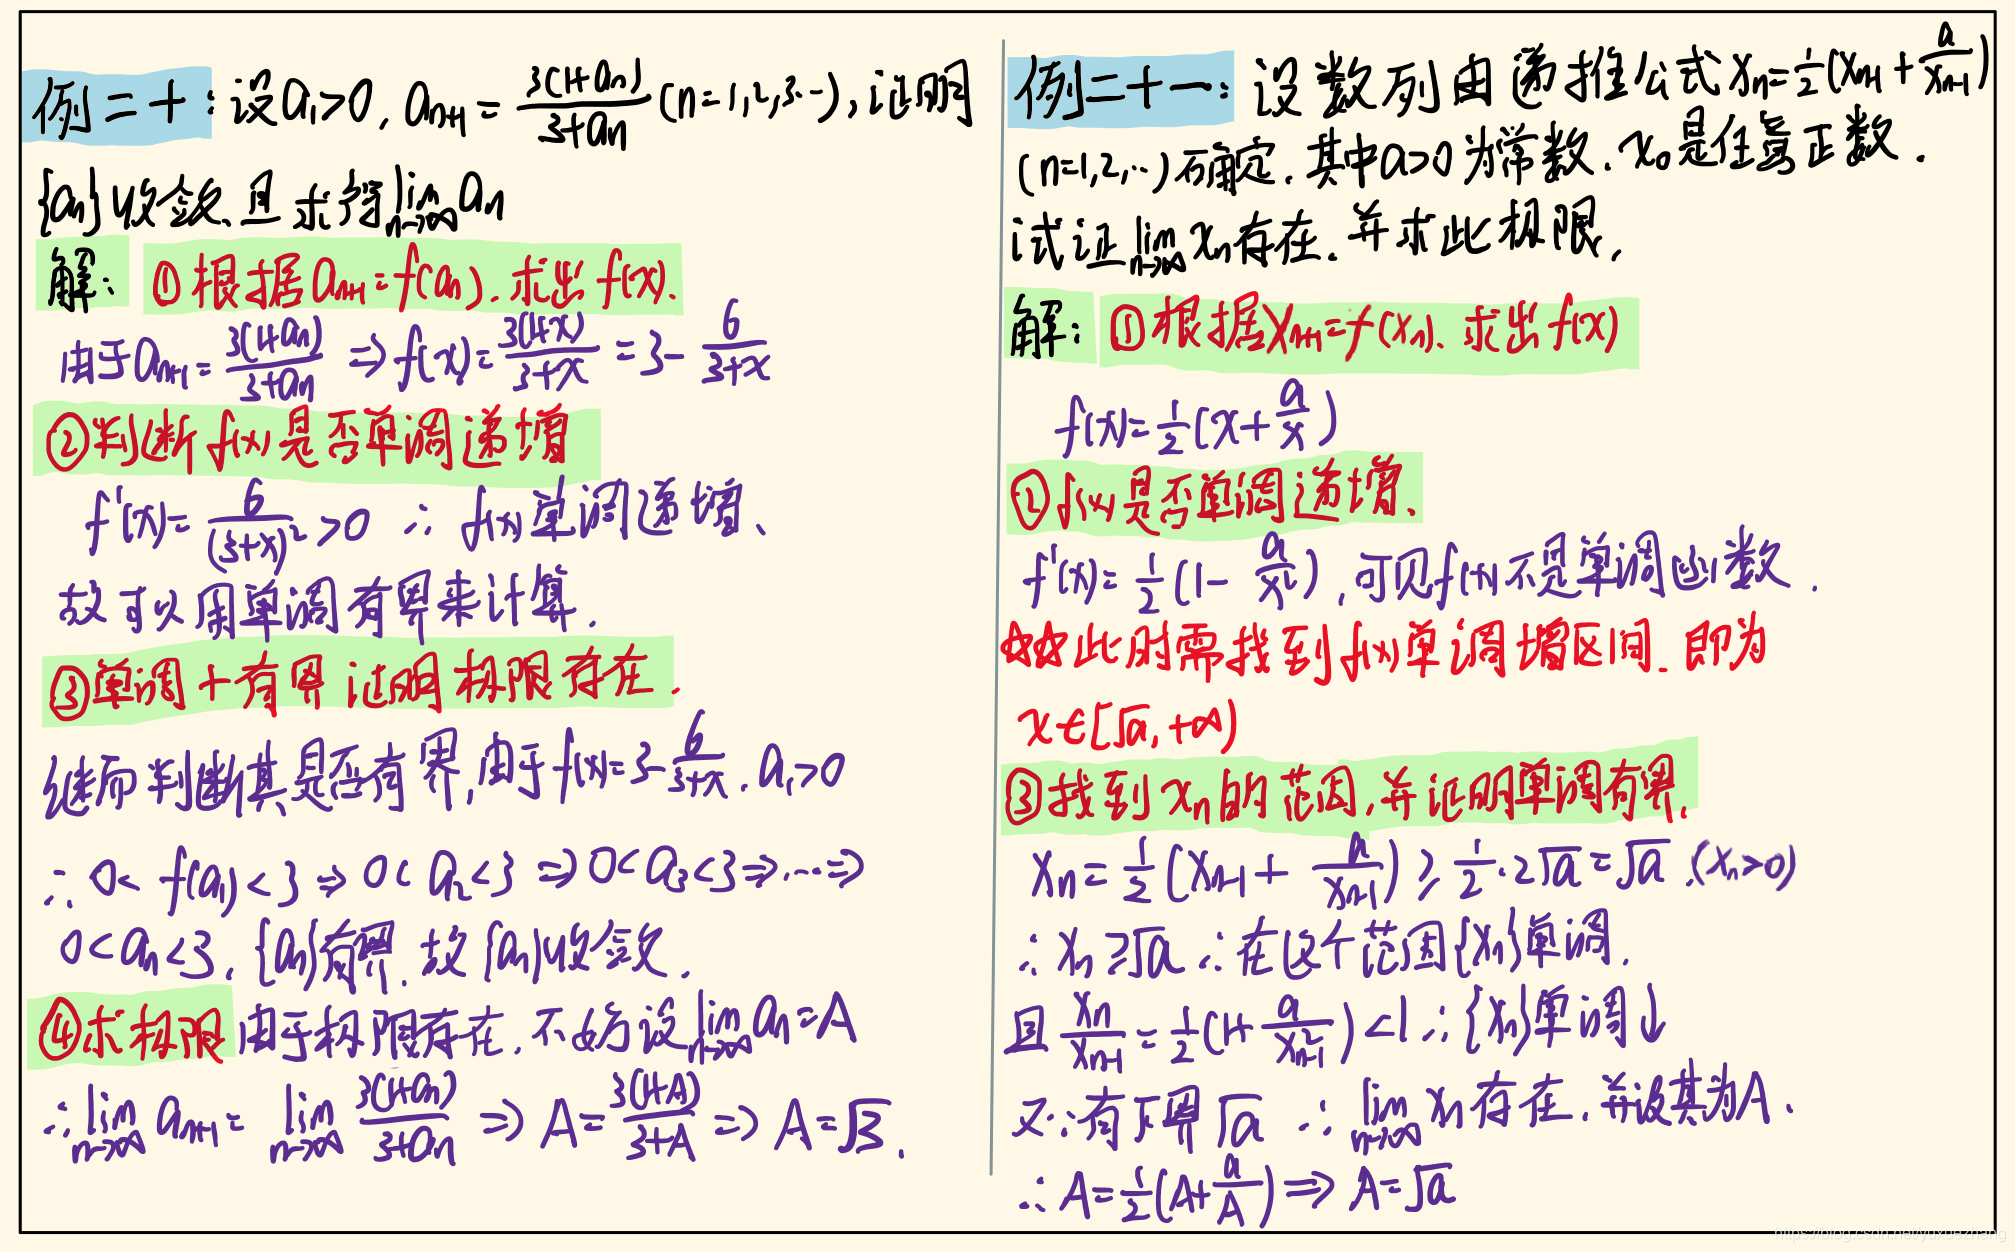 例二十：设a₁>0, aₙ₊₁ = 3(1+aₙ)/(3+aₙ) (n=1,2,3…), 证明
{aₙ}收敛、且求得 lim(n→∞) aₙ
解：①根据aₙ₊₁=f(aₙ). 求出f(x).
由于aₙ₊₁ = 3(1+aₙ)/(3+aₙ) ⇒ f(x) = 3(1+x)/(3+x) = 3 - 6/(3+x)
②判断f(x)是否单调递增
f'(x) = 6/(3+x)² > 0 ∴ f(x)单调递增、
故可以用单调有界来计算.
③单调+有界 证明极限存在.
继而判断其是否有界, 由于f(x)=3-6/(3+x). a₁>0
∴ 0< f(a₁) <3 ⇒ 0< a₂ <3 ⇒ 0< a₃ <3 ⇒ … ⇒
0<aₙ<3. {aₙ}有界. 故{aₙ}收敛.
④求极限 由于极限存在. 不妨设 lim(n→∞) aₙ = A
∴ lim(n→∞) aₙ₊₁ = lim(n→∞) 3(1+aₙ)/(3+aₙ) ⇒ A = 3(1+A)/(3+A) ⇒ A = √3.
例二十一：设数列由递推公式 xₙ = 1/2(xₙ₋₁ + a/xₙ₋₁)
(n=1,2,…)确定. 其中a>0为常数. x₀是任意正数.
试证 lim(n→∞) xₙ存在. 并求此极限.
解：①根据xₙ₊₁=f(xₙ). 求出f(x)
f(x) = 1/2(x + a/x)
②f(x)是否单调递增.
f'(x) = 1/2(1 - a/x²), 可见f(x)不是单调函数.
☆☆此时需找到f(x)单调增区间. 即为
x∈[√a, +∞)
③找到xₙ的范围, 并证明单调有界.
xₙ = 1/2(xₙ₋₁ + a/xₙ₋₁) ≥ 1/2·2√a = √a. (xₙ>0)
∴ xₙ ≥ √a ∴ 在这个范围{xₙ}单调.
且 xₙ/xₙ₋₁ = 1/2(1 + a/x²ₙ₋₁) < 1 ∴ {xₙ}单调↓
又∵有下界√a ∴ lim(n→∞) xₙ存在. 并设其为A.
∴ A = 1/2(A + a/A) ⇒ A = √a